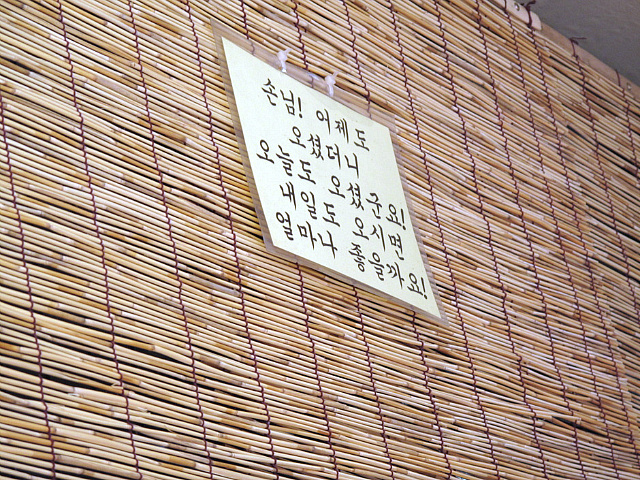 손님! 어제도
오셨더니
오늘도 오셨군요!
내일도 오시면
얼마나 좋을까요!